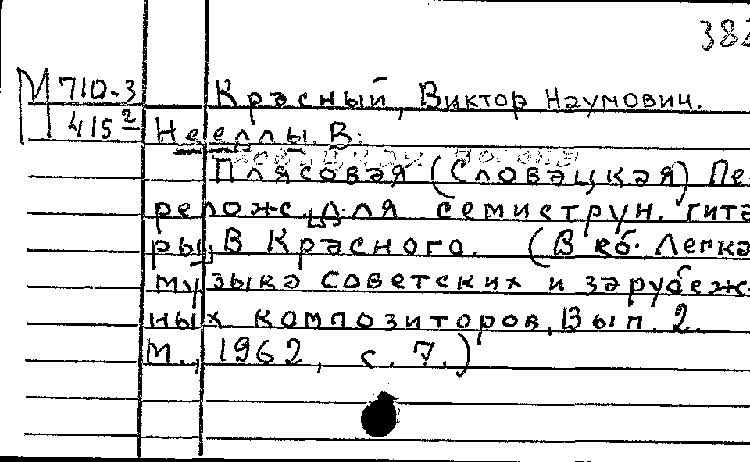 382
М 710-3 Красный, Виктор Наумович.
415² Нееллы. В.
Плясовая (Словацкая) Пе-
релож. для семиструн. гита
ры В Красного. (В кб. Легка
музыка советских и зарубеж-
ных композиторов, Вып. 2.
М., 1962, с. 7.)